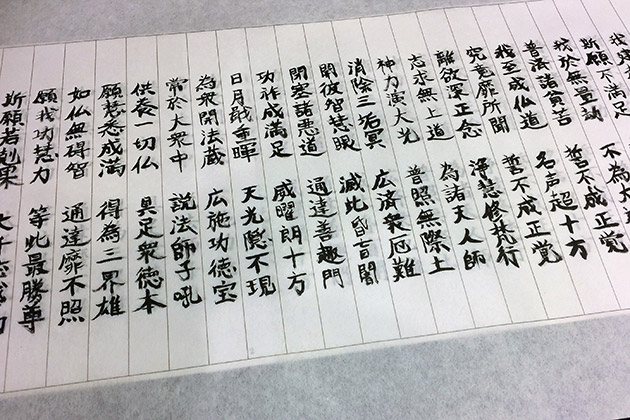 我建
斯願不満足
我於無量劫 不為大
普済諸貧苦 誓不成正覚
我至成仏道 名声超十方
究竟靡所聞 誓不成正覚
離欲深正念 浄慧修梵行
志求無上道 為諸天人師
神力演大光 普照無際土
消除三垢冥 広済衆厄難
開彼智慧眼 滅此昏盲闇
閉塞諸悪道 通達善趣門
功祚成満足 威曜朗十方
日月戢重暉 天光隠不現
為衆開法蔵 広施功徳宝
常於大衆中 説法師子吼
供養一切仏 具足衆徳本
願慧悉成満 得為三界雄
如仏無碍智 通達靡不照
願我功慧力 等此最勝尊
斯願若剋果 大千応感